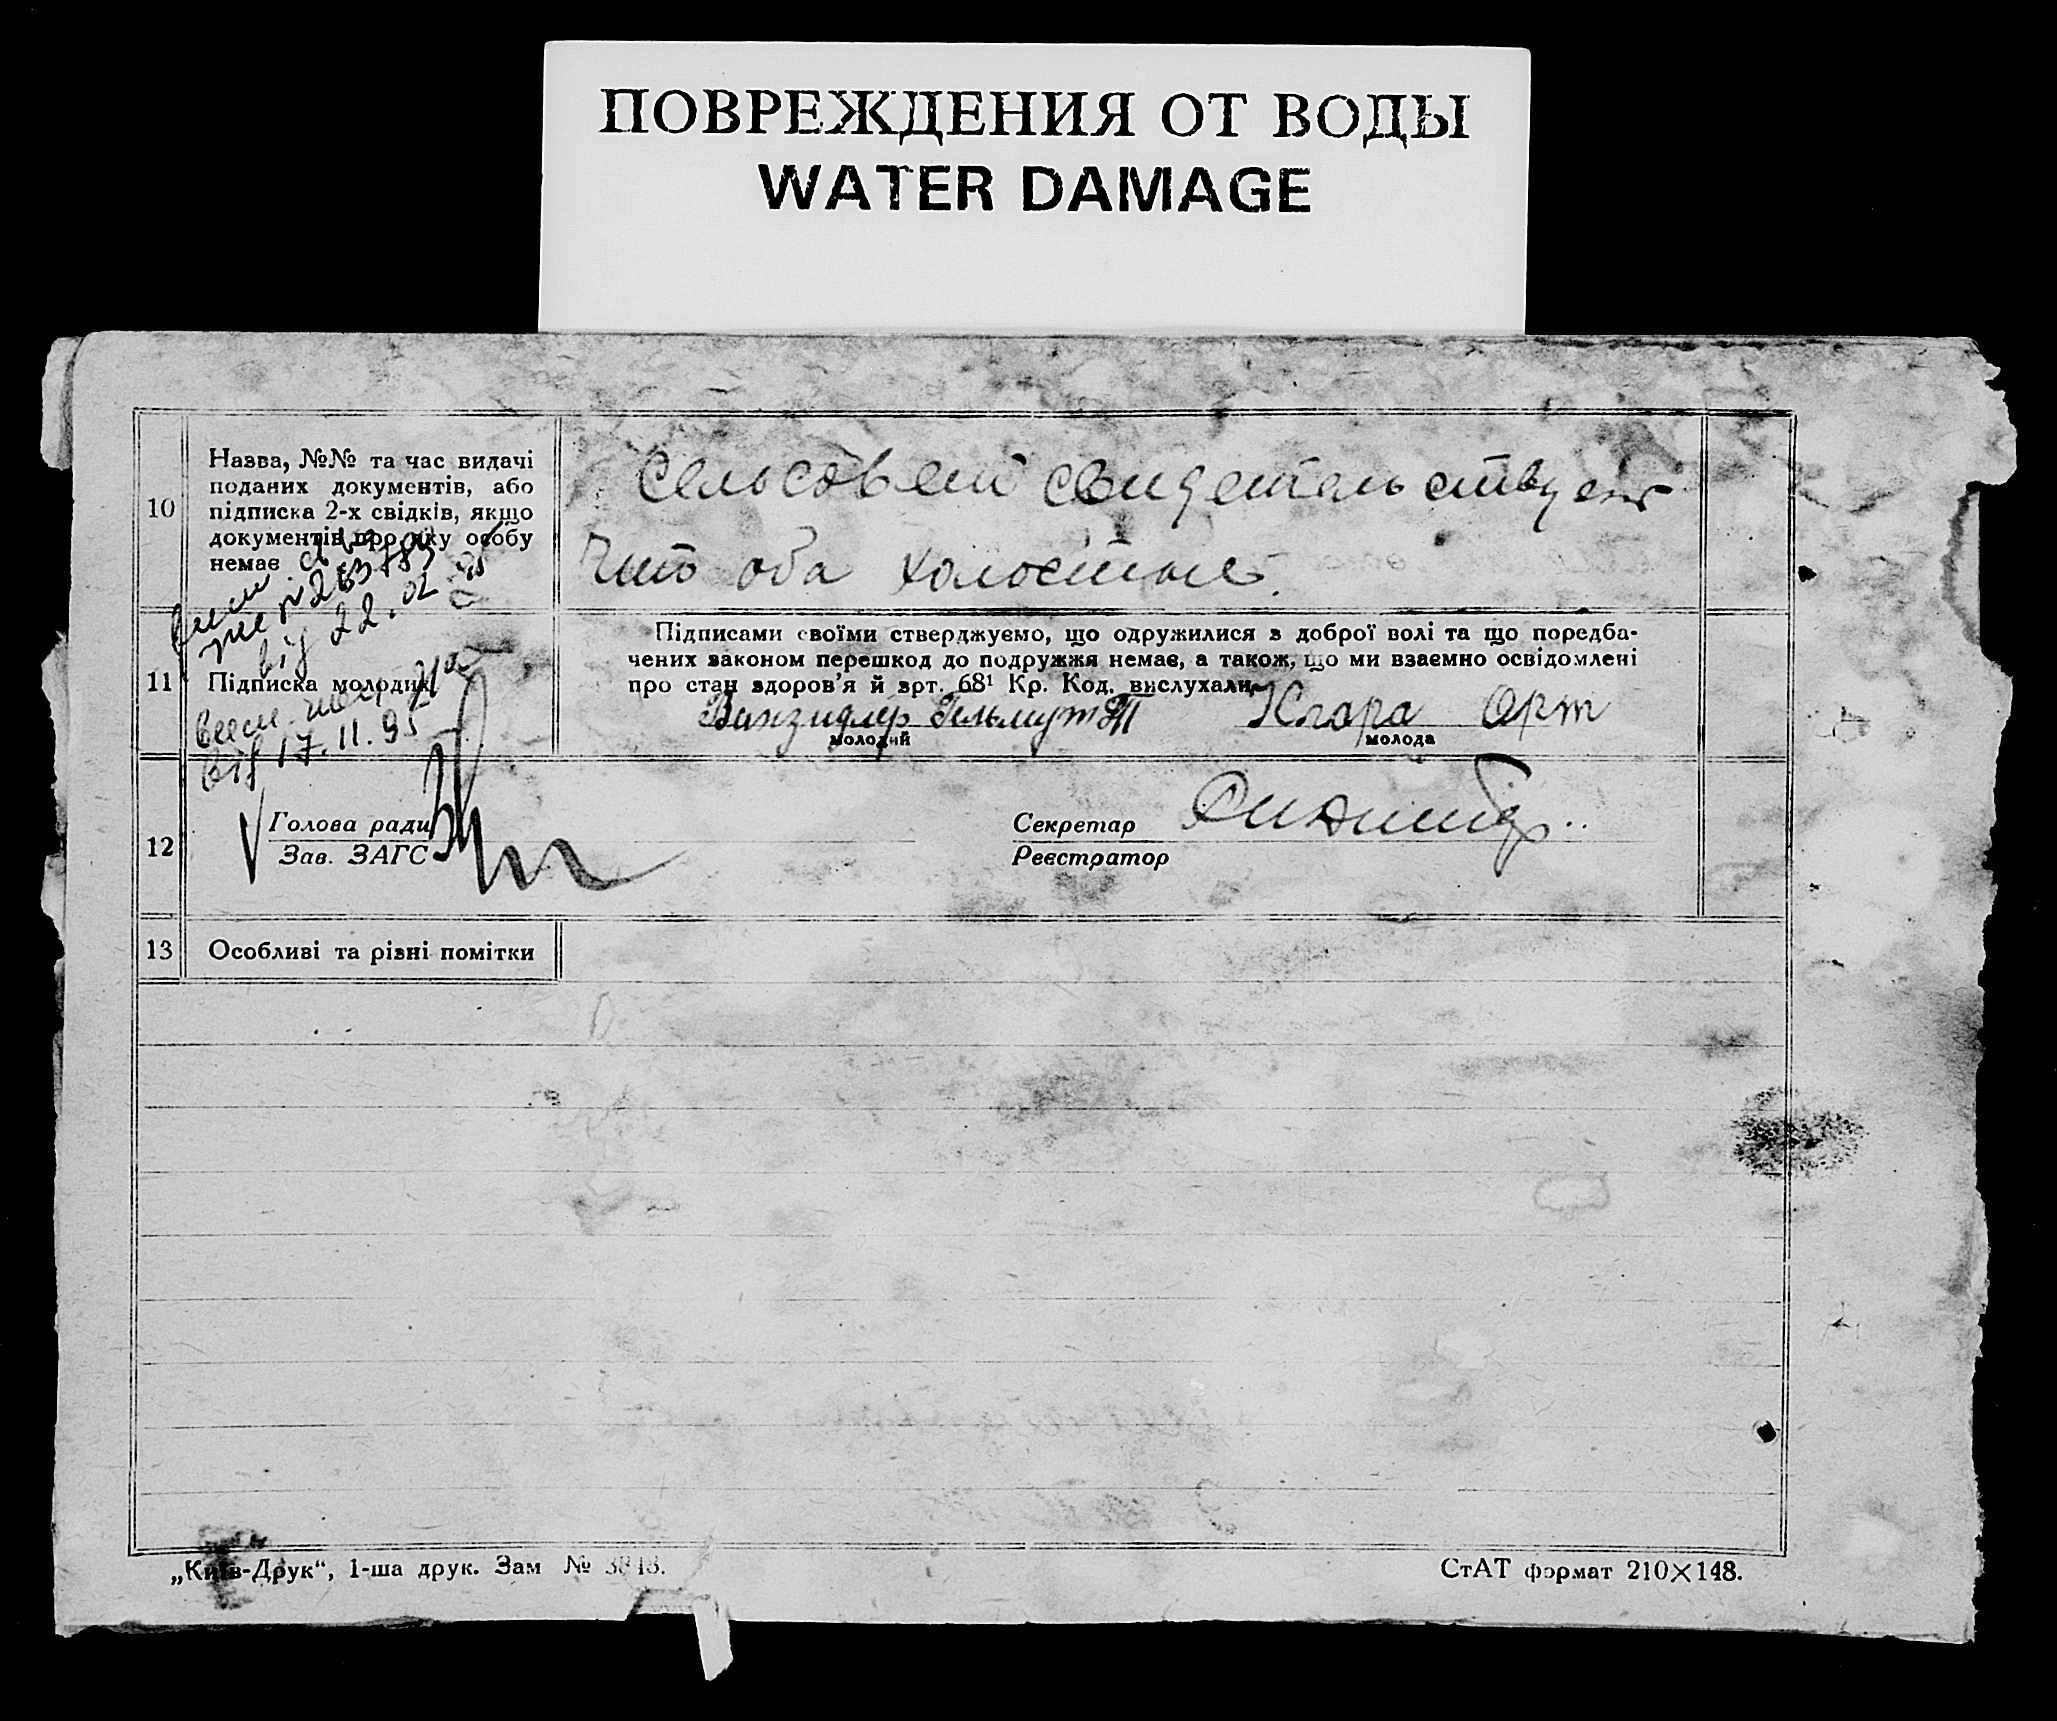 ПОВРЕЖДЕНИЯ ОТ ВОДЫ
WATER DAMAGE
10
Назва, №№ та час видачі
поданих документів, або
підписка 2-х свідків, якщо
документів про яку особу
немає
Сельсовет свидетельствует
Что оба холостые.
від 22.02
11
Підписка молодих
від 17.11.95
Підписами своїми стверджуємо, що одружилися з доброї волі та що поредба-
чених законом перешкод до подружжя немає, а також, що ми взаємно освідомлені
про стан здоров'я й зрт. 68¹ Кр. Код. вислухали.
Винзидлер Гельмут Клара Орт
молодий молода
12
Голова ради
Зав. ЗАГС
Секретар
Реєстратор
13
Особливі та різні помітки
„Київ-Друк“, 1-ша друк. Зам №
СтАТ формат 210×148.